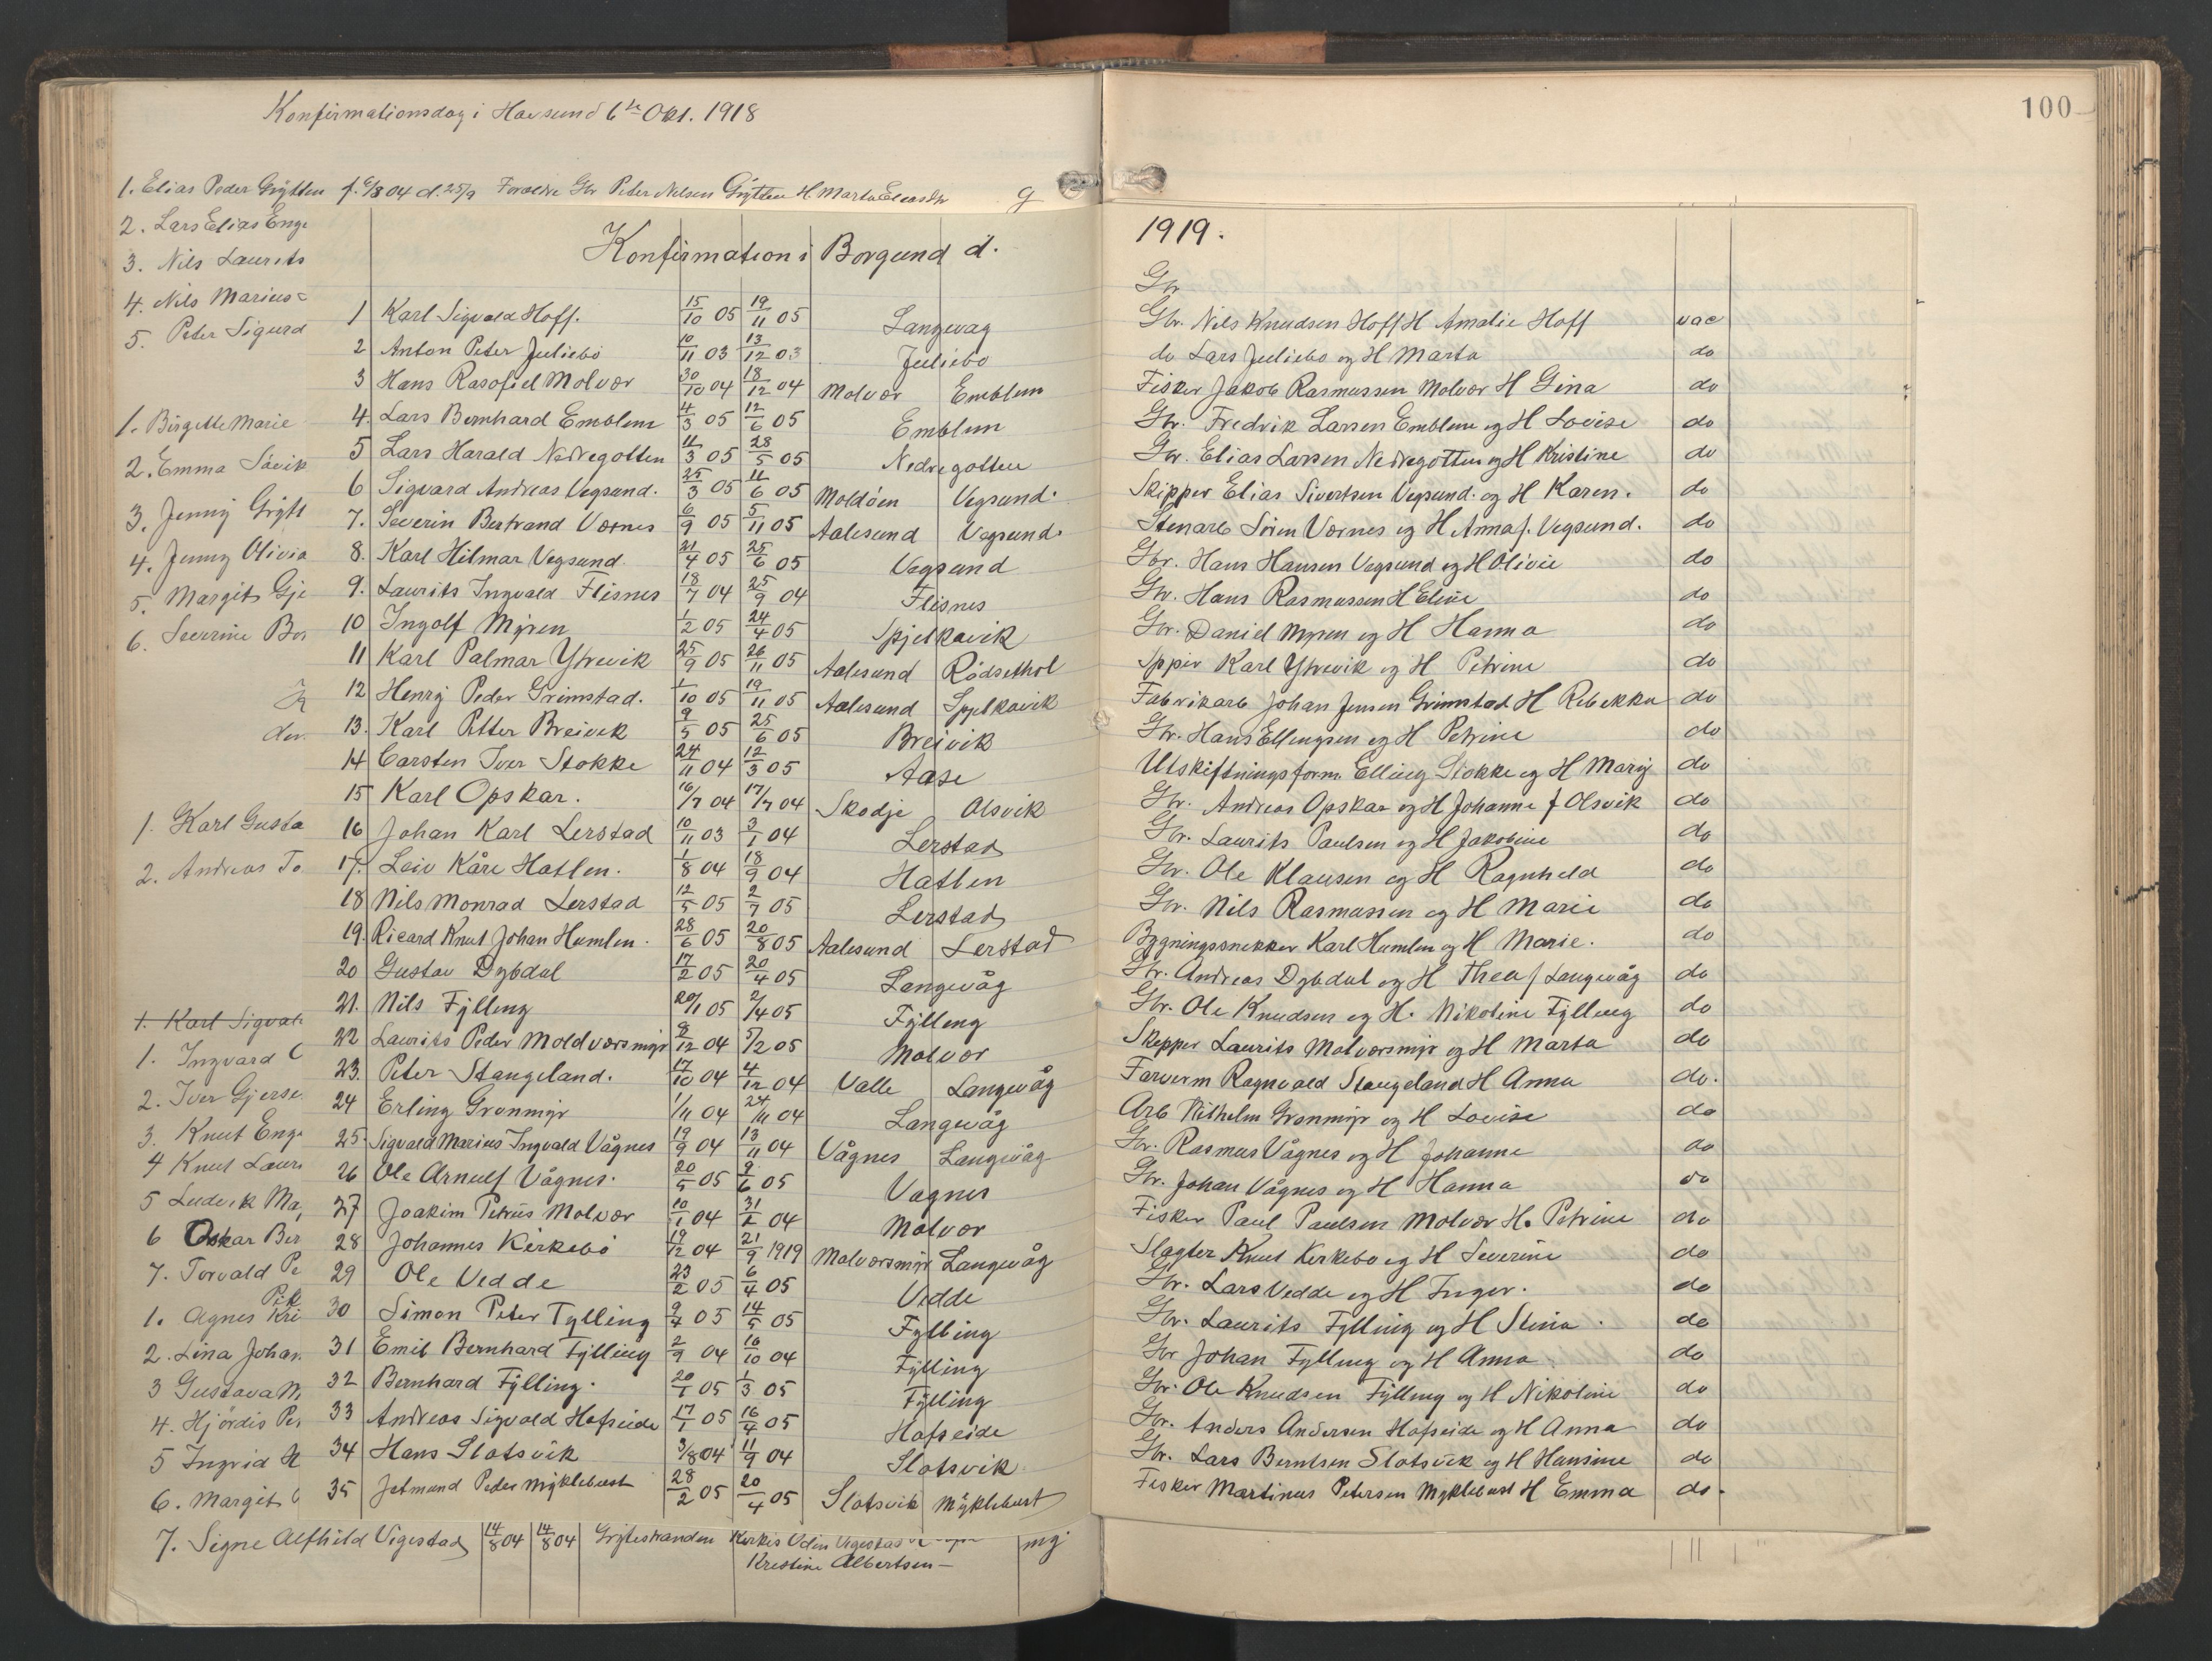 Konfirmationsdag i Havsund 6te Okt. 1918
100
1. Elias Peder Grytten f. 6/8 04 d. 25/9 Forældre Gbr Peter Nelsen Grytten H. Marta
g
2. Lars Elias Enge
3. Nils Laurits
4. Nils Marius
5. Peter Sigurd
1. Birgitte Marie
2. Emma Søvik
3. Jenny Grytt
4. Jenny Olivia
5. Margit Gje
6. Severine Bor
der.
1. Karl Gusta
2. Andreas To
1. Karl Sigvald
1. Ingvard
2. Iver Gjerse
3. Knut Enge
4 Knut Laur
5 Ludvik Ma
6 Oskar Ber
7. Torvald Pe
Pik
1. Agnes Kri
2. Lina Johan
3 Gustava M
4. Hjørdis Pe
5 Ingrid H
6. Margit
Konfirmation i Borgund d. 1919.
Gbr
1 Karl Sigvald Hoff. 15/10 05 19/11 05 Langevag Gbr. Nils Knudsen Hoff H Amalie Hoff vac
2 Anton Peter Juliebø 10/11 03 13/12 03 Juliebø do Lars Juliebø og H Marta do
3 Hans Rasofiel Molvær 30/10 04 18/12 04 Molvær Emblem Fisker Jakob Rasmussen Molvær H Gina do
4. Lars Bernhard Emblem 4/3 05 12/6 05 Emblem Gbr. Fredrik Larsen Emblem og H Lovise do
5 Lars Harald Nedregotten 11/3 05 28/5 05 Nedregotten Gbr. Elias Larsen Nedregotten og H Kristine do
6 Sigvard Andreas Vegsund. 25/3 05 11/6 05 Moldöen Vegsund. Skipper Elias Sivertsen Vegsund. og H Karen. do
7. Severin Bertrand Værnes 6/9 05 5/11 05 Aalesund Vegsund. Stenarb Sören Værnes og H Anna f. Vegsund. do
8. Karl Hilmar Vegsund 21/4 05 25/6 05 Vegsund Gbr. Hans Hansen Vegsund og H Olivie do
9. Laurits Ingvald Flisnes 18/7 04 25/9 04 Flisnes Gbr. Hans Rasmussen H Eline do
10 Ingolf Myren 1/2 05 24/4 05 Spjelkavik Gbr. Daniel Myren og H Hanna do
11 Karl Palmar Ytrevik 25/9 05 26/11 05 Aalesund Rødsethol Sppir Karl Ytrevik og H Petrine do
12 Henry Peder Grimstad. 1/10 05 19/11 05 Aalesund Spjelkavik Fabrikarb Johan Jensen Grimstad H Rebekka do
13. Karl Petter Breivik 9/5 05 25/6 05 Breivik Gbr. Hans Ellingsen og H Petrine do
14 Carsten Iver Stokke 24/11 04 12/3 05 Aase Utskiftningsform. Elling Stokke og H Mary do
15 Karl Opskar. 16/7 04 17/7 04 Skodje Olsvik Gbr. Andreas Opskar og H Johanne f Olsvik do
16 Johan Karl Lerstad 10/11 03 3/1 04 Lerstad Gbr. Laurits Paulsen og H Jakobine do
17. Leiv Kåre Hatlen. 1/8 04 18/9 04 Hatlen Gbr. Ole Klausen og H Ragnheld do
18 Nils Monrad Lerstad 12/5 05 2/7 05 Lerstad Gbr. Nils Rasmussen og H Marie do
19. Ricard Knut Johan Humlen. 28/6 05 20/8 05 Aalesund Lerstad Bygningssnekker Karl Humlen og H Marie. do
20 Gustav Dybdal 17/2 05 20/4 05 Langevåg Gbr. Andreas Dybdal og H Thea f Langevåg do
21. Nils Fylling 20/1 05 2/4 05 Fylling Gbr. Ole Knudsen og H. Nikoline Fylling do
22 Laurits Peder Moldværsmyr 9/12 04 5/2 05 Molvær Skipper Laurits Molværsmyr og H Marta do
23. Peter Stangeland. 17/10 04 4/12 04 Valle Langevåg Farverm Ragnvald Stangeland H Anna do.
24 Erling Grønmyr 1/11 04 24/11 04 Langevåg Arb Vilhelm Grønmyr og H Lovise do
25. Sigvald Marius Ingvald Vågnes 19/9 04 13/11 04 Vågnes Langevåg Gbr. Rasmus Vågnes og H Johanne do
26 Ole Arnulf Vågnes. 20/5 05 9/6 05 Vagnes Gbr. Johan Vågnes og H Hanna do
27 Joakim Petrus Molvær 10/1 04 31/2 04 Molvær Fisker Paul Paulsen Molvær H. Petrine do
28 Johannes Kirkebø 19/12 04 21/9 1919 Molværsmyr Langevåg Slagter Knut Kirkebø og H Severine do
29 Ole Vedde 23/2 05 6/4 05 Vedde Gbr. Lars Vedde og H Inger. do
30 Simon Peter Fylling 9/4 05 14/5 05 Fylling Gbr. Laurits Fylling og H Stina. do
31 Emil Bernhard Fylling 2/9 04 16/10 04 Fylling Gbr Johan Fylling og H Anna do
32 Bernhard Fylling. 20/1 05 1/3 05 Fylling Gbr. Ole Knudsen Fylling og H Nikoline do
33 Andreas Sigvald Hofseide 17/1 05 16/4 05 Hofseide Gbr. Anders Andersen Hofseide og H Anna do
34 Hans Slotsvik 3/8 04 11/9 04 Slotsvik Gbr. Lars Berntsen Slotsvik og H Hansine do
35 Jetmund Peder Myklebust 28/2 05 20/4 05 Slotsvik Myklebust Fisker Martinus Petersen Myklebust H Emma do.
7. Signe Alfhild Vigestad 14/8 04 14/8 04 Grytestranden Kirkes Odin Vigestad
Kristine Albertsen
mg